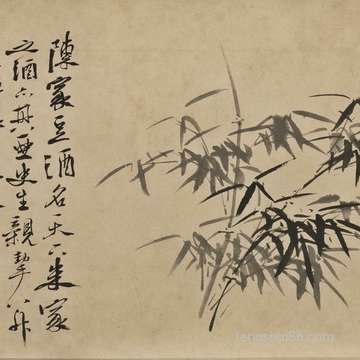 陳家豆酒名天下朱家
之酒亦其亞史生親挈八升